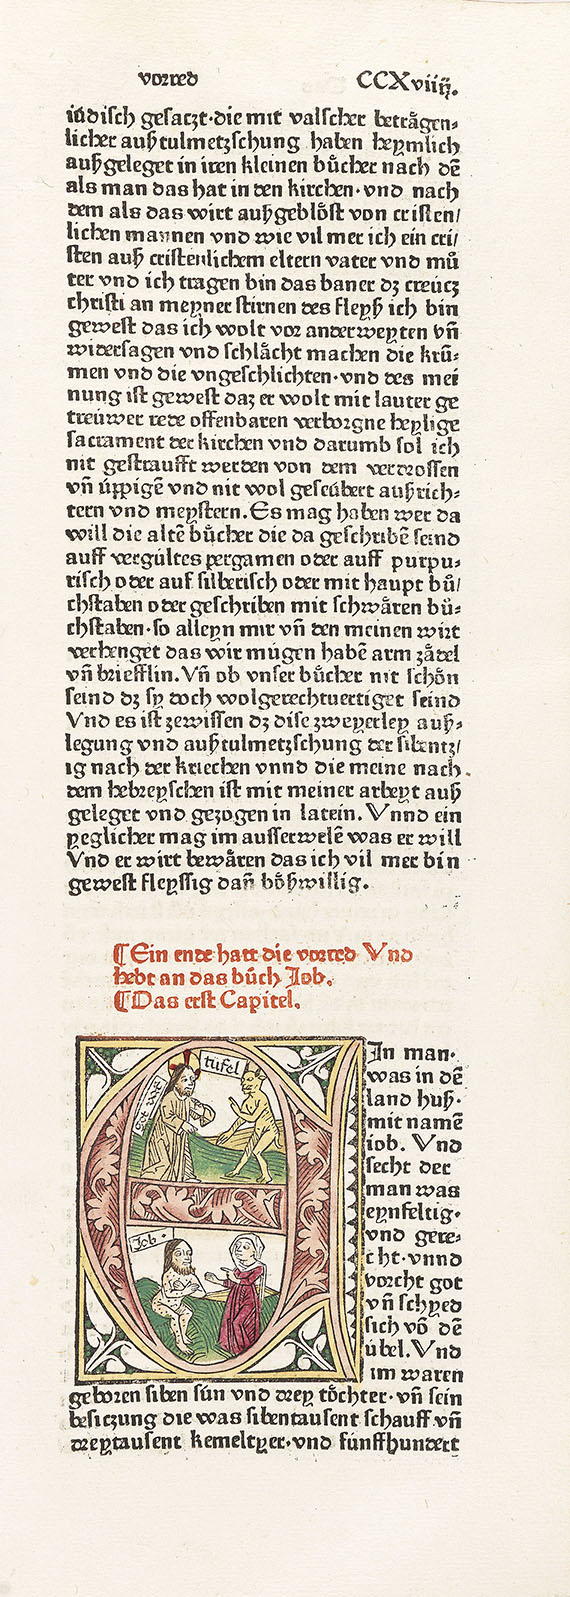 vorred CCXviiij.
iüdisch gesaczt·die mit valscher beträgen⸗
licher außtulmetzschung haben heymlich
außgeleget in iren kleinen bücher nach dē
als man das hat in den kirchen·vnd nach
dem als das wirt außgeblöst von cristen/
lichen mannen vnd wie vil mer ich ein cri/
sten auß cristenlichem eltern vater vnd mů
ter vnd ich tragen bin das baner dz creücz
christi an meyner stirnen des fleyß ich bin
gewest das ich wolt vor anderweyten vñ
widersagen vnd schlächt machen die krū⸗
men vnd die vngeschlichten·vnd des mei
nung ist gewest daz er wolt mit lauter ge
treüwer rede offenbaren verborgne heylige
sacrament der kirchen vnd darumb sol ich
nit gestraufft werden von dem verdrossen
vñ üppigē vnd nit wol geseübert außrich⸗
tern vnd meystern. Es mag haben wer da
will die altē bücher die da geschribē seind
auff vergültes pergamen oder auff purpu⸗
risch oder auf silberisch oder mit haupt bů/
chstaben oder geschriben mit schwären bů⸗
chstaben·so alleyn mir vñ den meinen wirt
verhenget das wir mügen habē arm zädel
vñ briefflin. Vñ ob vnser bücher nit schön
seind dz sy doch wolgerechtuertiget seind
Vnd es ist zewissen dz dise zweyerley auß⸗
legung vnd außtulmetzschung der sibentz/
ig nach der kriechen vnnd die meine nach
dem hebreyschen ist mit meiner arbeyt auß
geleget vnd gezogen in latein. Vnnd ein
yeglicher mag im ausserwelē was er will
Vnd er wirt bewären das ich vil mer bin
gewest fleyssig dañ bößwillig.
¶Ein ende hatt die vorred Vnd
hebt an das bůch Job.
¶Das erst Capitel.
tüfel
Job·
EJn man·
was in dē
land huß·
mit namē
iob. Vnd
secht der
man was
eynfeltig·
vnd gere⸗
cht·vnnd
vorcht got
vñ schyed
sich võ dē
übel. Vnd
im waren
geboren siben sün vnd drey töchter·vñ sein
besiczung die was sibentausent schauff vñ
dreytausent kemeltyer·vnd fünffhundert